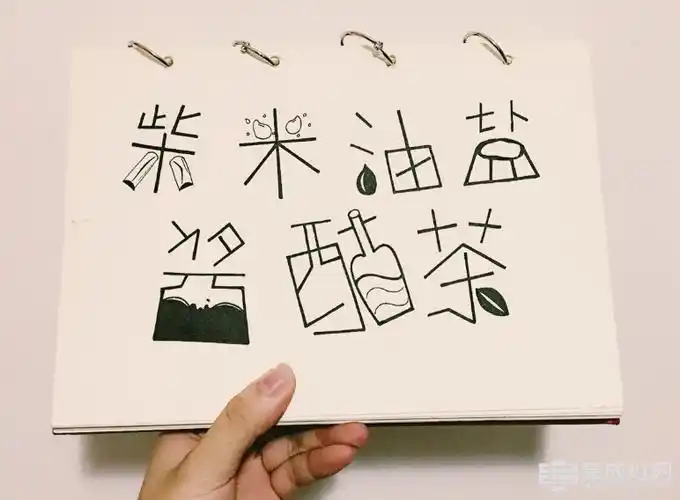 柴米油盐
酱醋茶
集成灶网